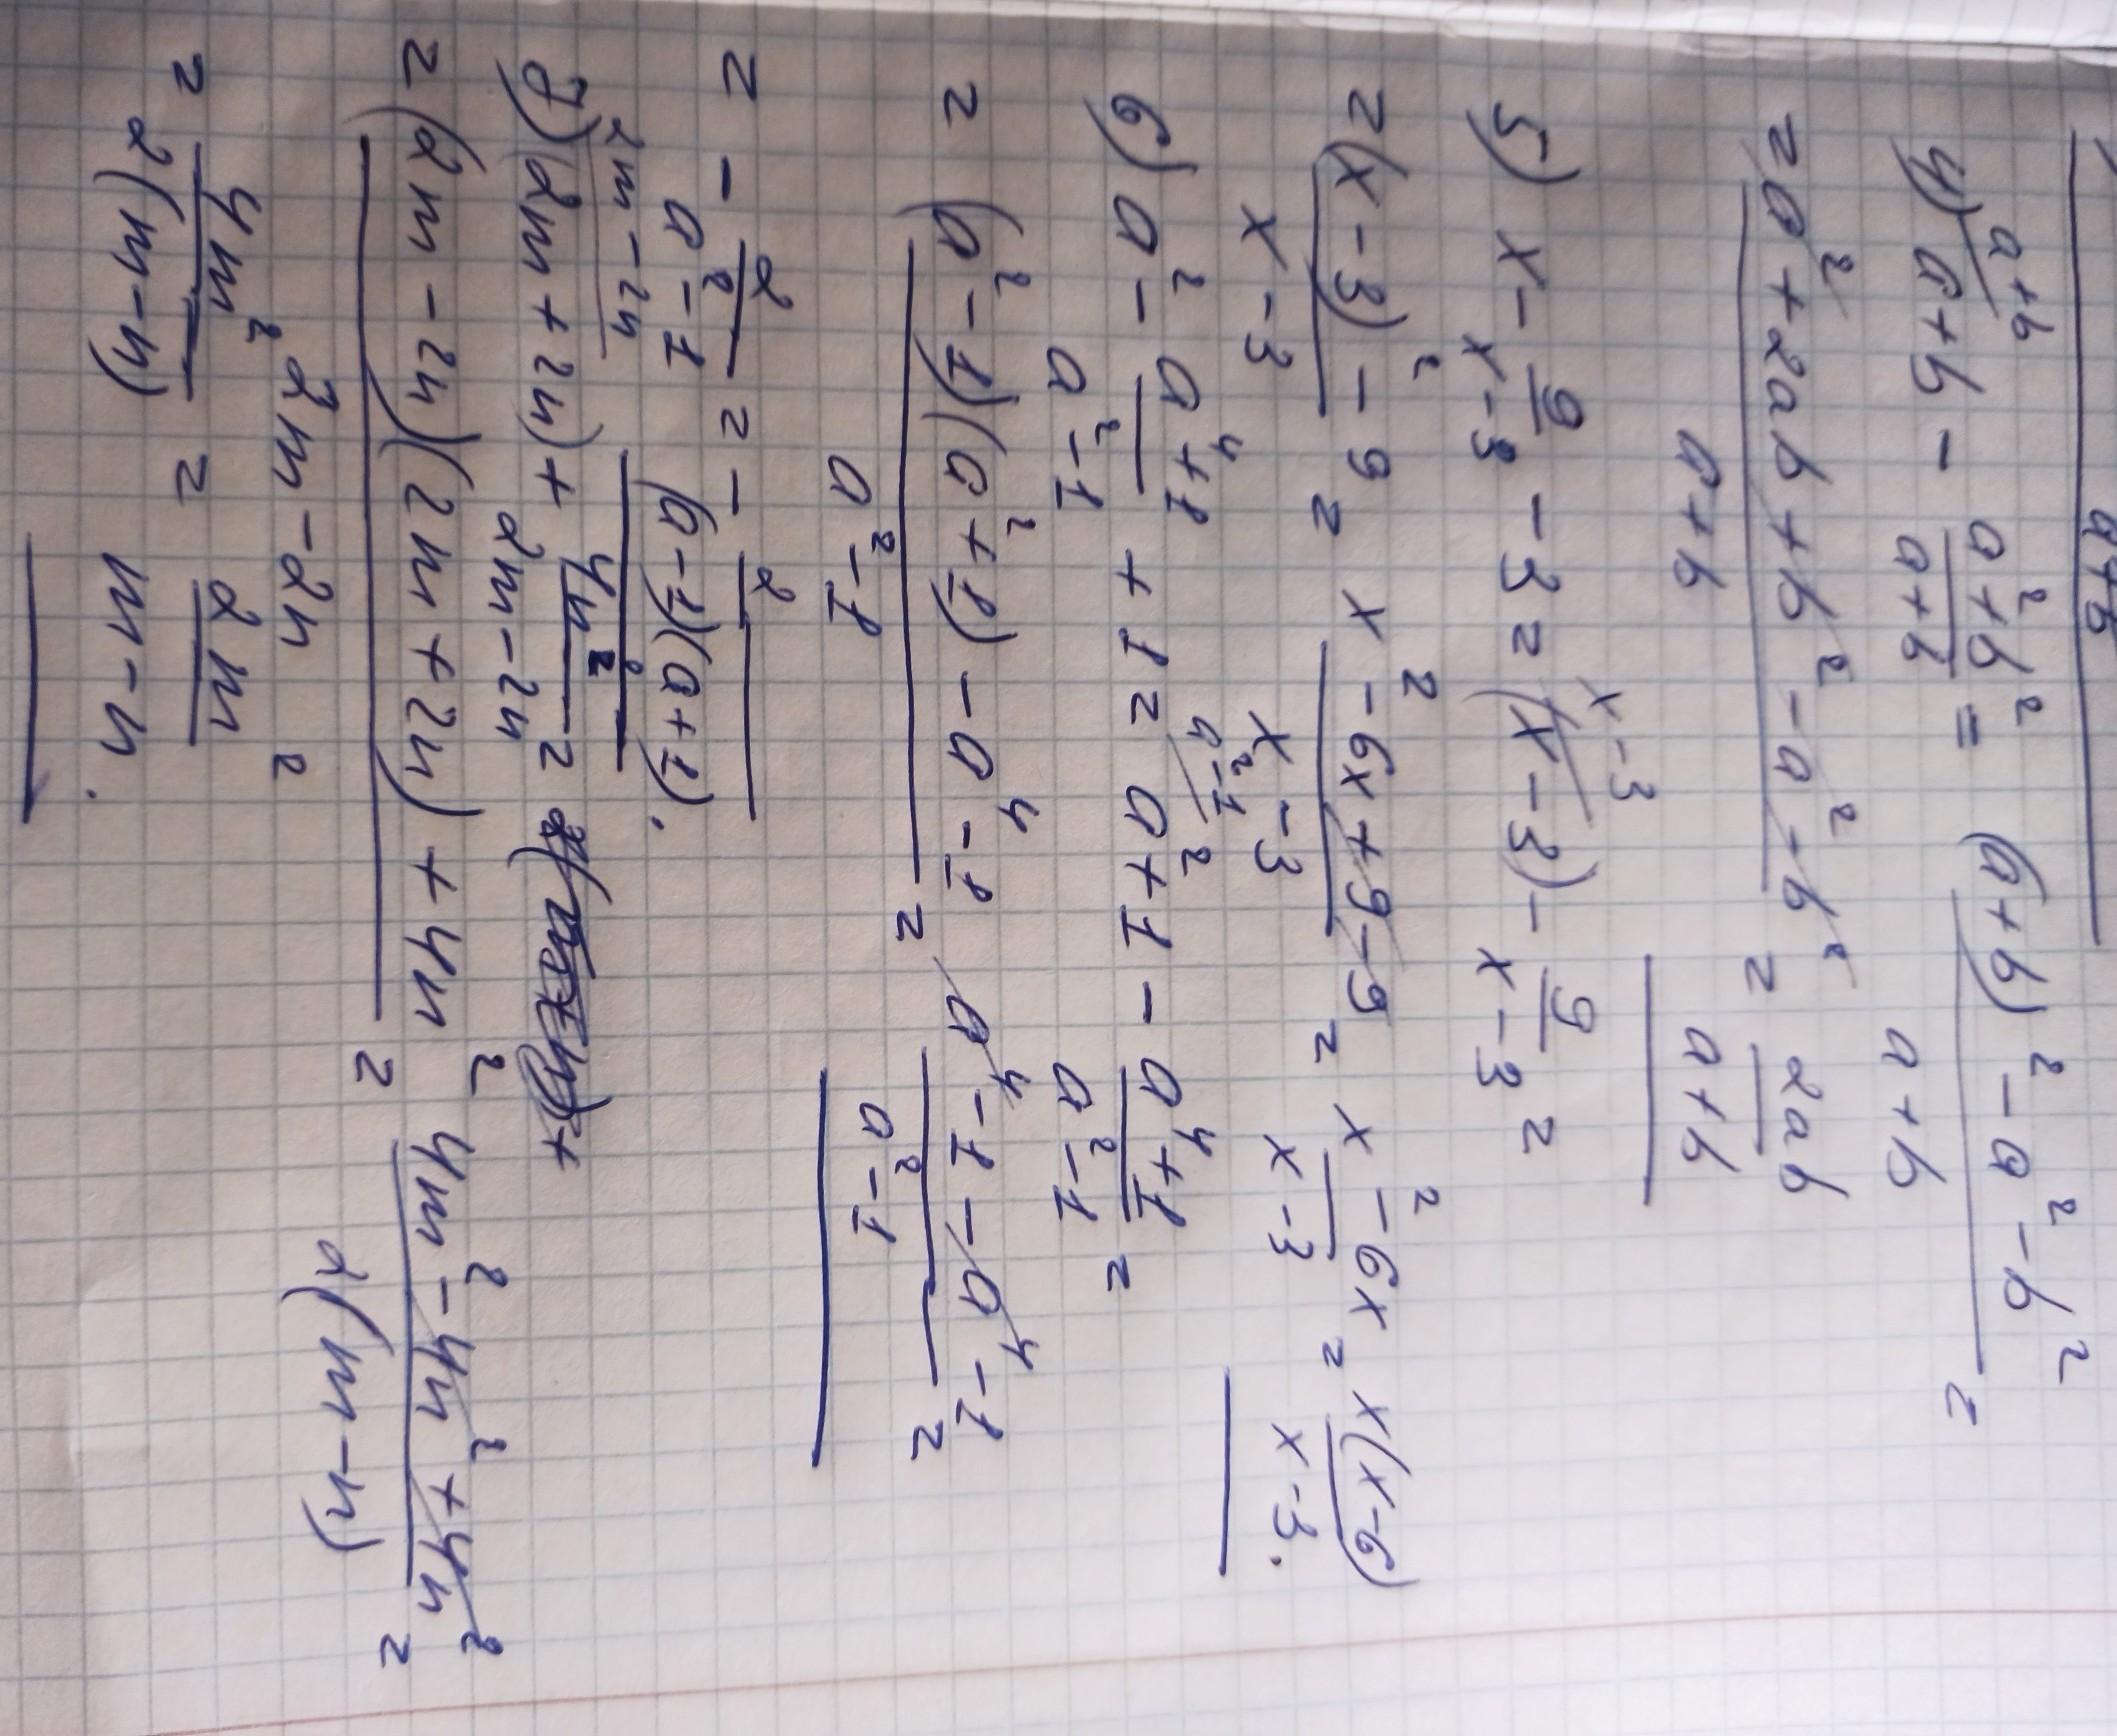 a+b
4) a+b - (a²+b²)/(a+b) = ((a+b)² - a² - b²)/(a+b) =
= (a² + 2ab + b² - a² - b²)/(a+b) = 2ab/(a+b)
5) x - 9/(x-3) - 3 = (x-3) - 9/(x-3) =
= ((x-3)² - 9)/(x-3) = (x² - 6x + 9 - 9)/(x-3) = (x² - 6x)/(x-3) = x(x-6)/(x-3).
6) a² - (a⁴+1)/(a²-1) + 1 = a²+1 - (a⁴+1)/(a²-1) =
= ((a²-1)(a²+1) - a⁴ - 1)/(a²-1) = (a⁴ - 1 - a⁴ - 1)/(a²-1) =
= - 2/(a²-1) = - 2/((a-1)(a+1)).
7) (2m + 2n) + 4n²/(2m-2n) =
= ((2m-2n)(2m+2n) + 4n²)/(2m-2n) = (4m² - 4n² + 4n²)/(2(m-n)) =
= 4m²/(2(m-n)) = 2m²/(m-n).